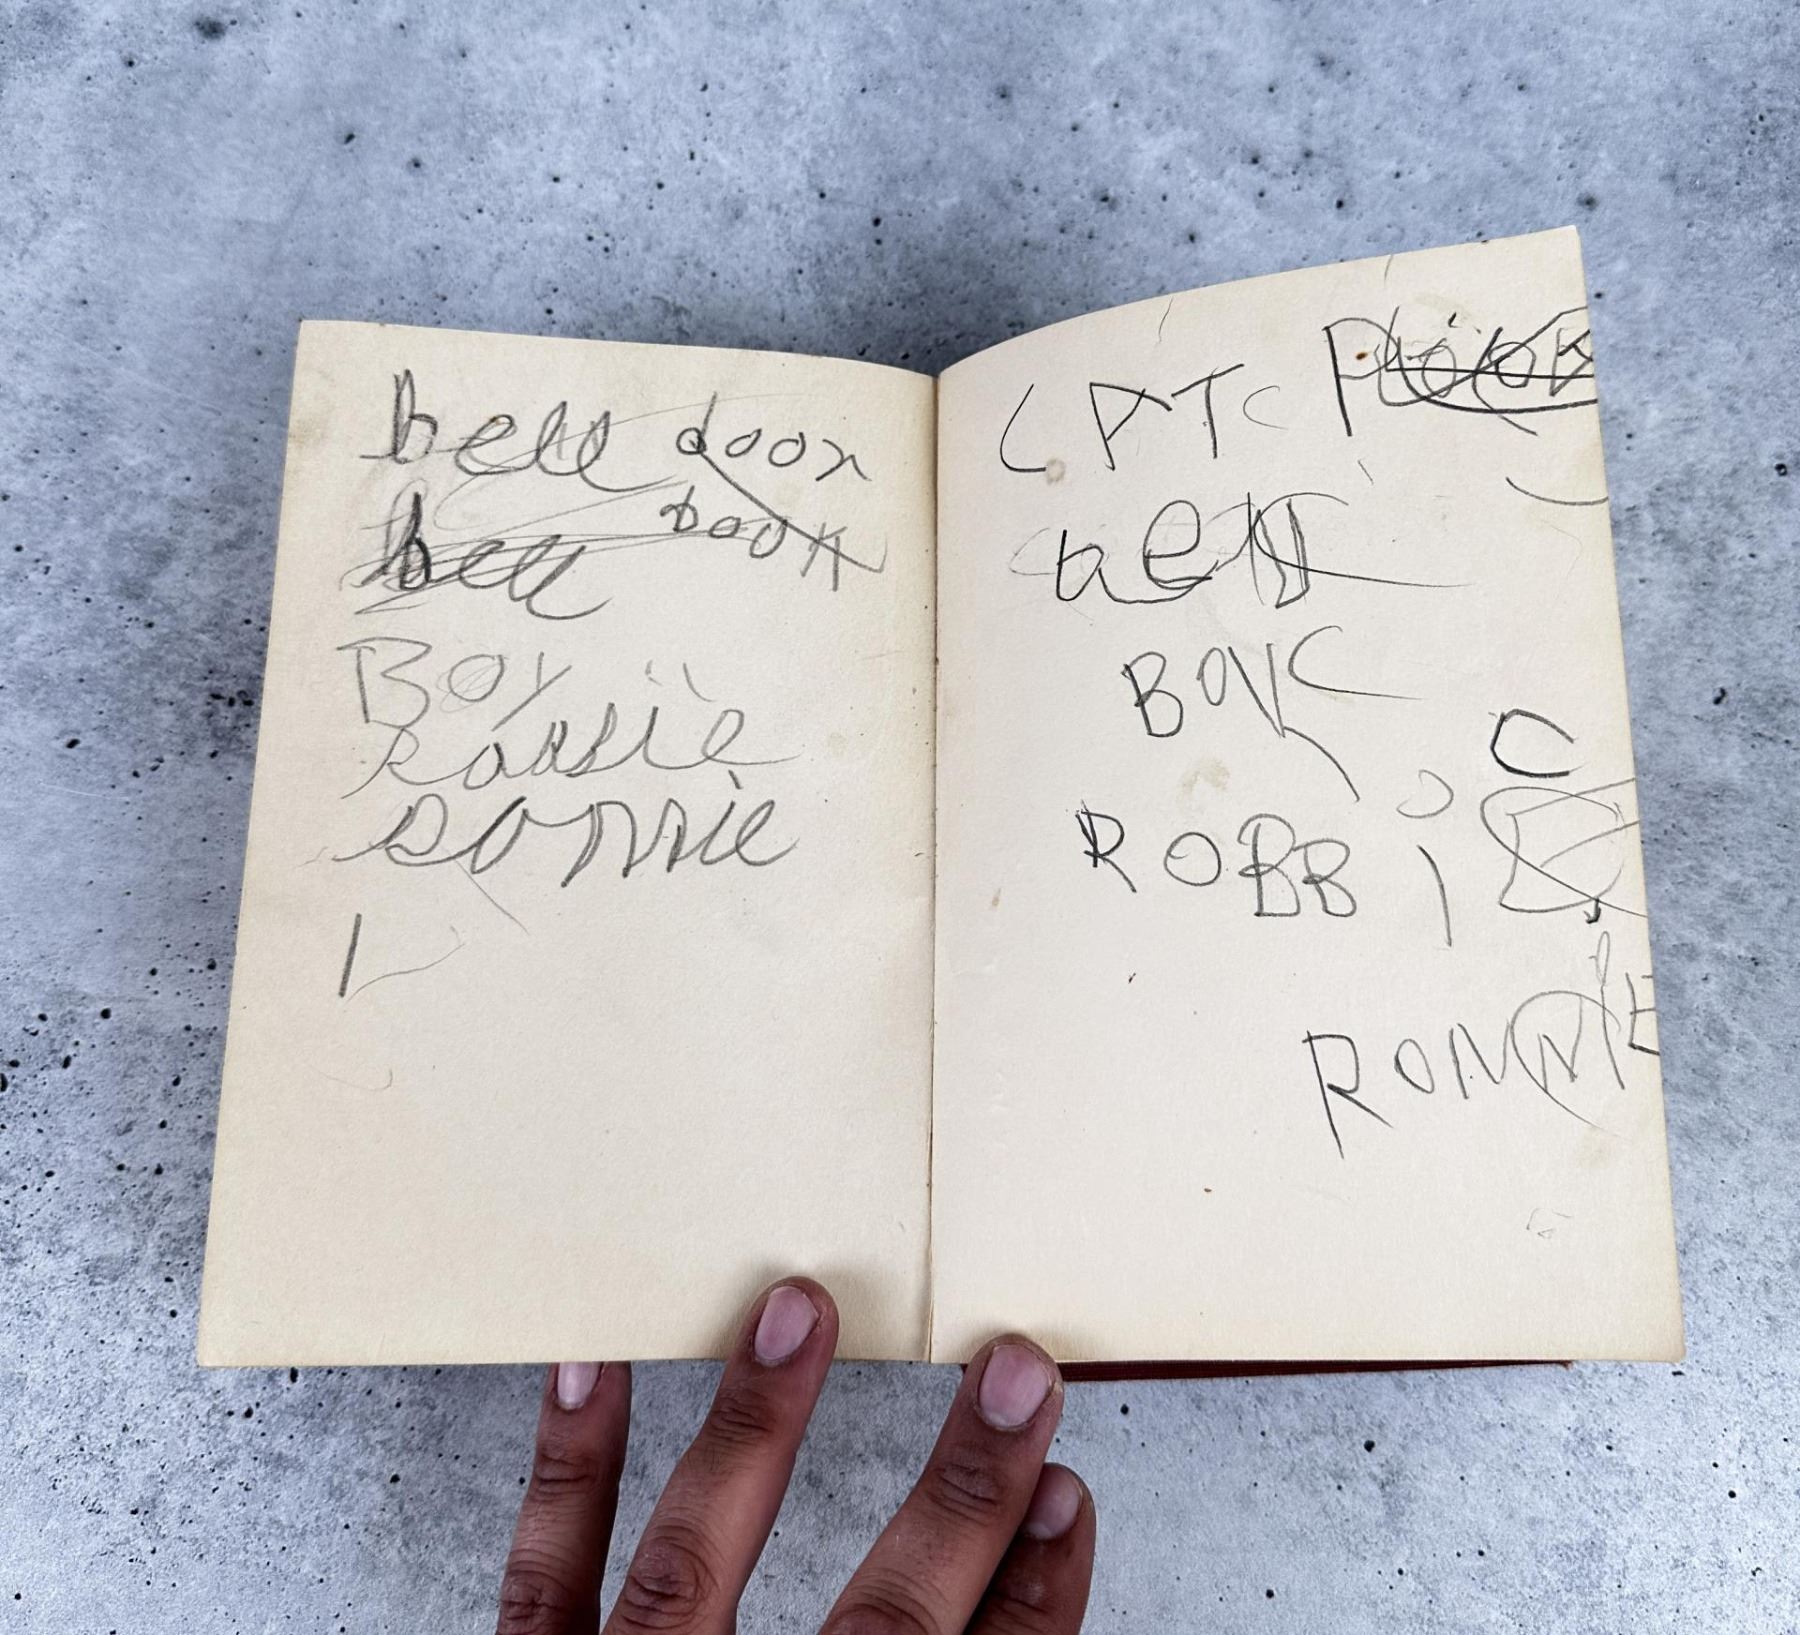 bell door
bell book
Boy
Robbie
Ronnie
CAT
BOY
ROBBIE
RONNIE